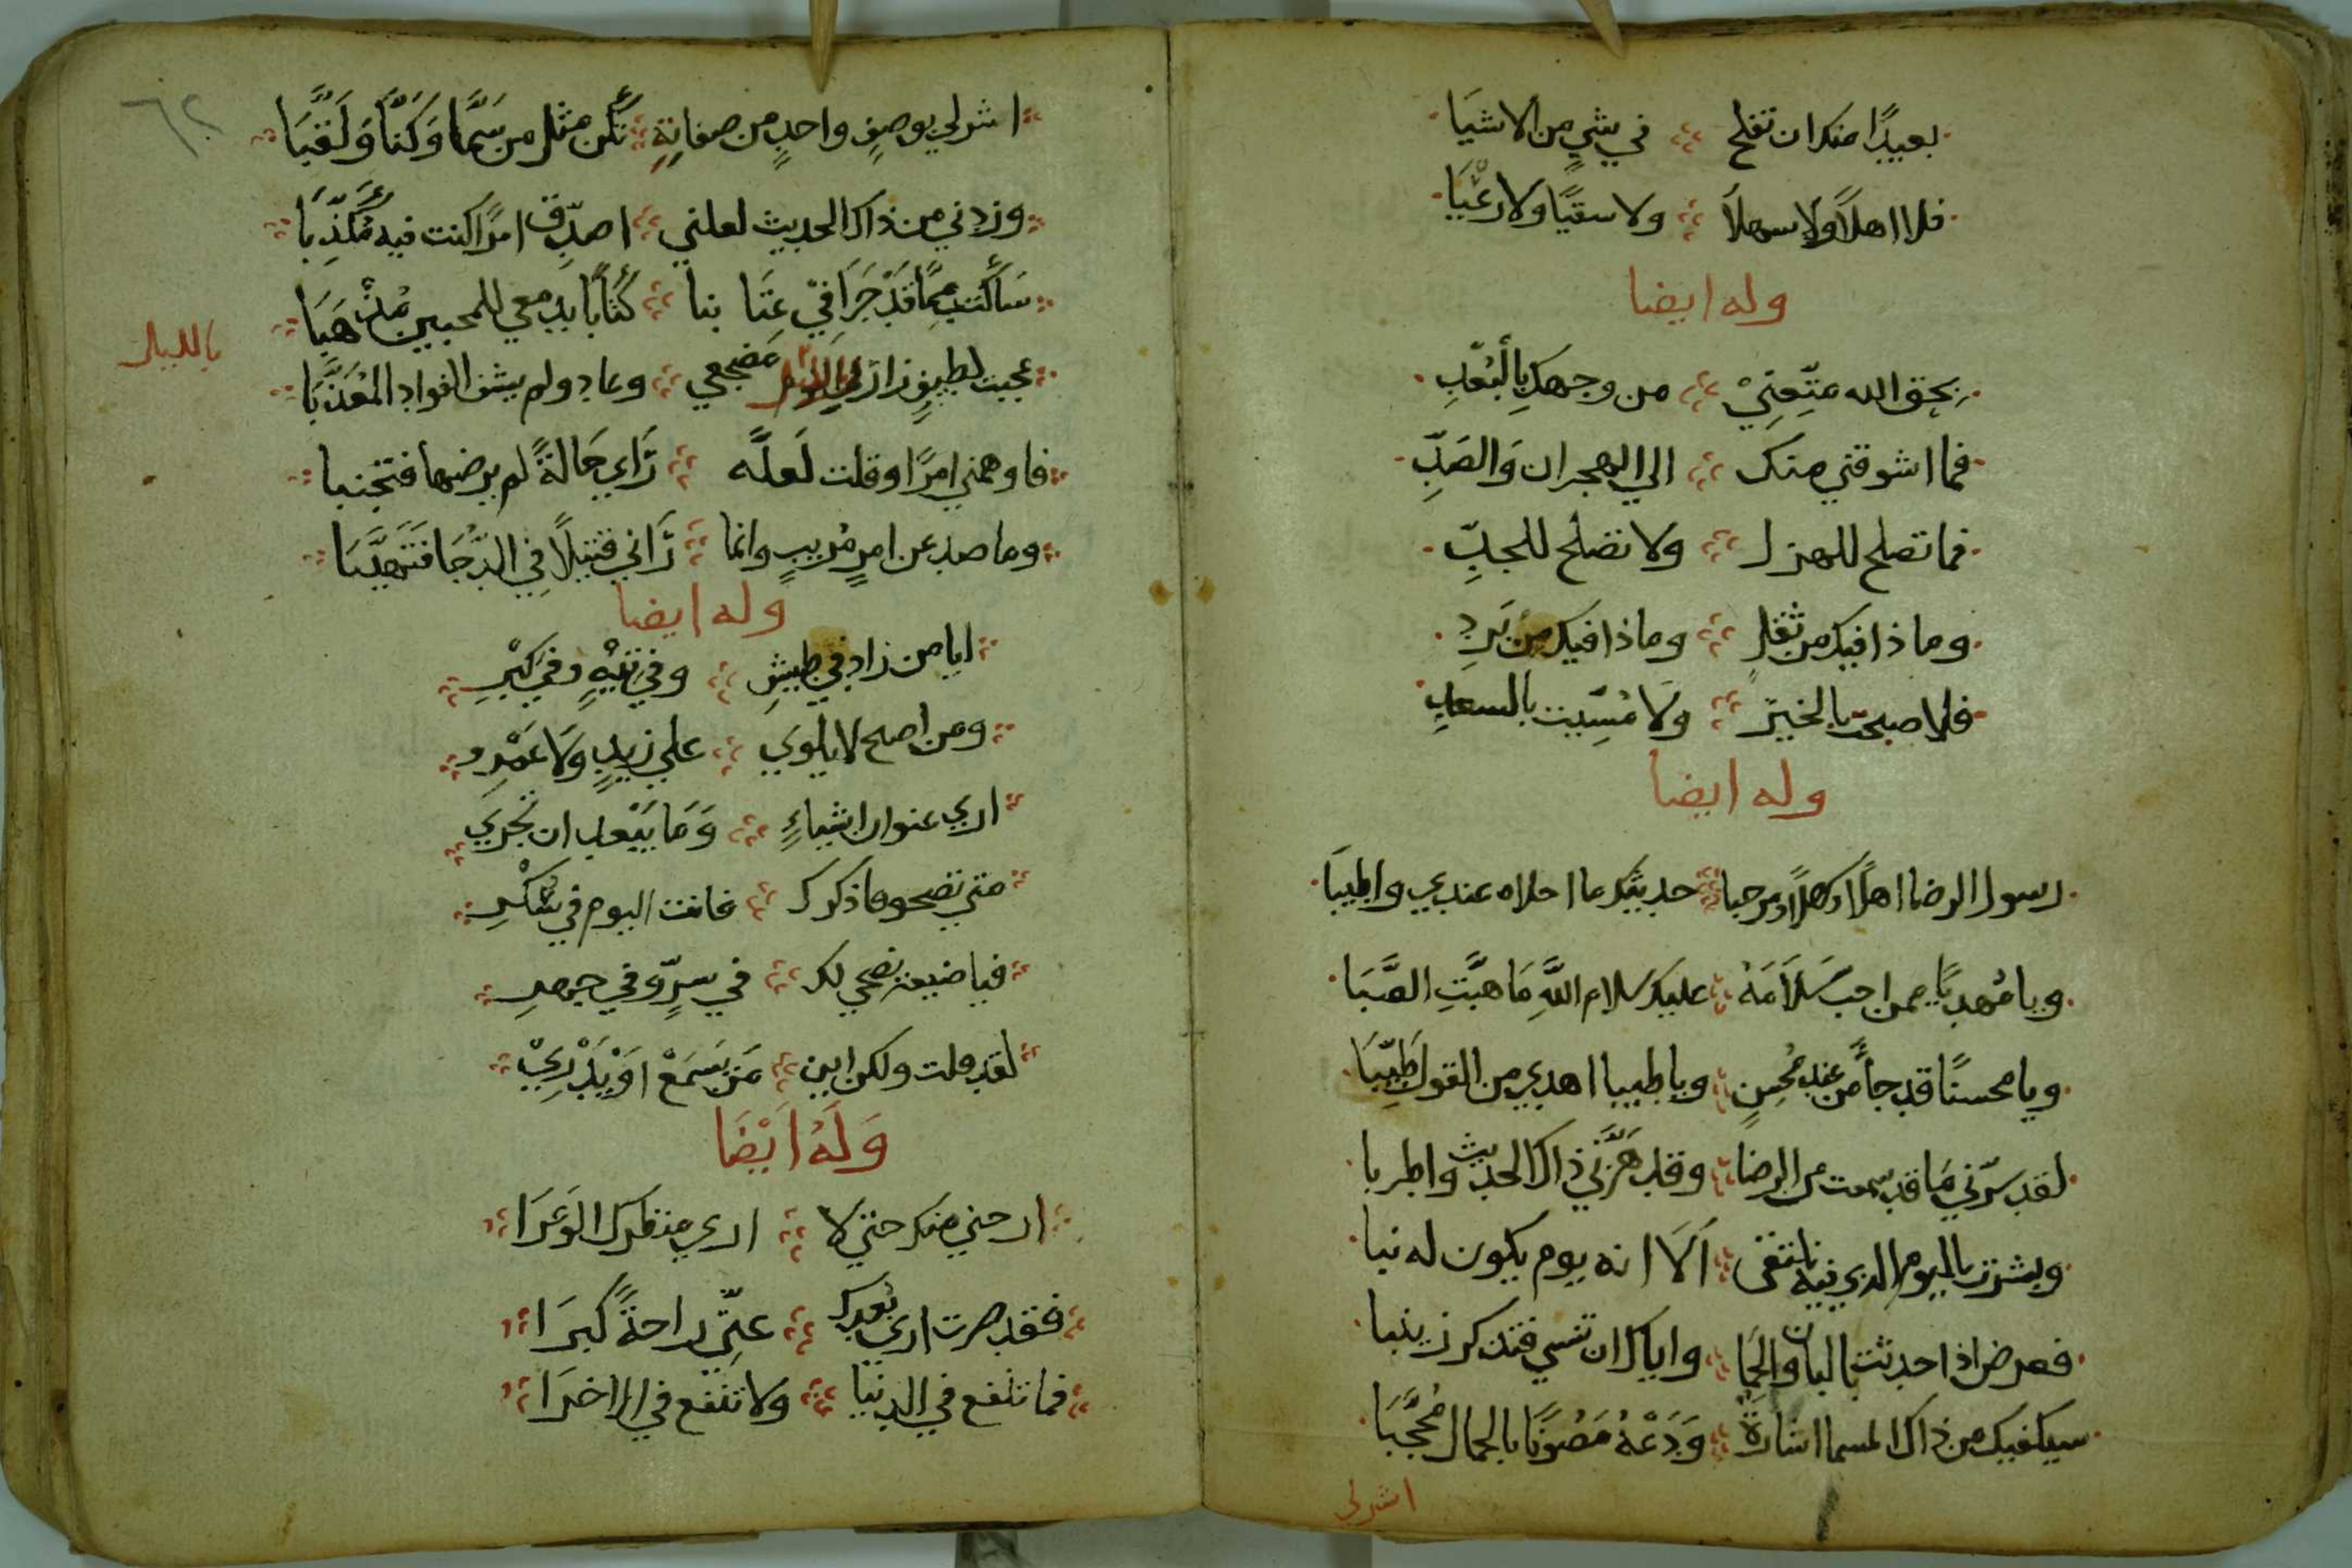 بعيدًا منك ان تفلح في شيٍ من الاشيَا
فلا اهلاً ولا سهلاً ولا سقيًا ولا رعْيَا
وله ايضا
بحق الله متِّعنِيْ من وجهكِ بالبُعْدِ
فما اشوقني منك الي الهجران وَالصَدِّ
فما تصلح للهزل ولا تصلح للجدِّ
وماذا فيك من ثقلٍ وماذا فيك من بَردِ
فلا صبحت بالخير ولا مُسِّيت بالسعد
وله ايضا
رسول الرضا اهلاً وسهلاً ومرحبا حديثك ما احلاه عندي واطيبَا
ويا مُهديًا ممن احب سَلاَمَهُ عليك سلام اللَّهِ مَا هبَّتِ الصَّبَا
ويا محسنًا قد جأ من عند مُحسِنٍ ويا طيبا اهدي من القول طَيِّبَا
لقد سَرّني مَا قد سمعت من الرضا وقد هَزَّني ذاك الحديث واطربا
وبشرت باليوم الذي فيه نلتقى اَلاَ انه يوم يكون له نبا
فعرض اذا حدثت بالبان والحِمَا واياك ان تنسي فتذكر زينبا
سيكفيك من ذاك المسما اشارةٌ وَدَعْهُ مَصُونًا بالجمال مُحجَّبَا
اشرلي
٦٢
اشرلي بوصفٍ واحدٍ من صفاتِهِ تكن مثل من سَمَّا وَكَنَّا وَلَقَّبَا
وزدني من ذاك الحديث لعلني اصدّق امرًا كنت فيه مُكَذِّبَا
سَأَكتب ممَّا قَدْ جَرَا في عِتَا بنا كتَابًا بدمعي للمحبين مُذْهَبَا
عجبت لطيفٍ زارَ مَضجعي وعاد ولم يشف الفواد المُعَذَّبَا
بالليل
فاوهمني امرًا وقلت لَعلَّه رَاي حَالةً لم يرضها فتجنبا
وما صد عن امرٍ مُريبٍ وانما رَاني قتيلاً فِي الدُّجَا فَتَهيَّبَا
وله ايضا
ايا من زاد في طيشٍ وفي تيْهٍ وفي كبْرِ
ومن اصبح لا يلوي علي زيدٍ ولا عَمْرو
اري عنوان اشياءٍ وَمَا يَبْعد ان تجري
متي تصحو ما ذكرك فانت اليوم في سُكْرِ
فيا ضيعة نصحي لك في سرٍّ وفي جهر
لقد قلت ولكن اين مَن يَسمَعْ اوْ يَدْرِيْ
وَلَهُ اَيْضَا
ارحني منك حتي لا اري منظرك الوَعَرَا
فقد صرت اري بُعدك عنِّي راحةً كبرَا
فما تنفع في الدنيا ولا تنفع في الاخرَا